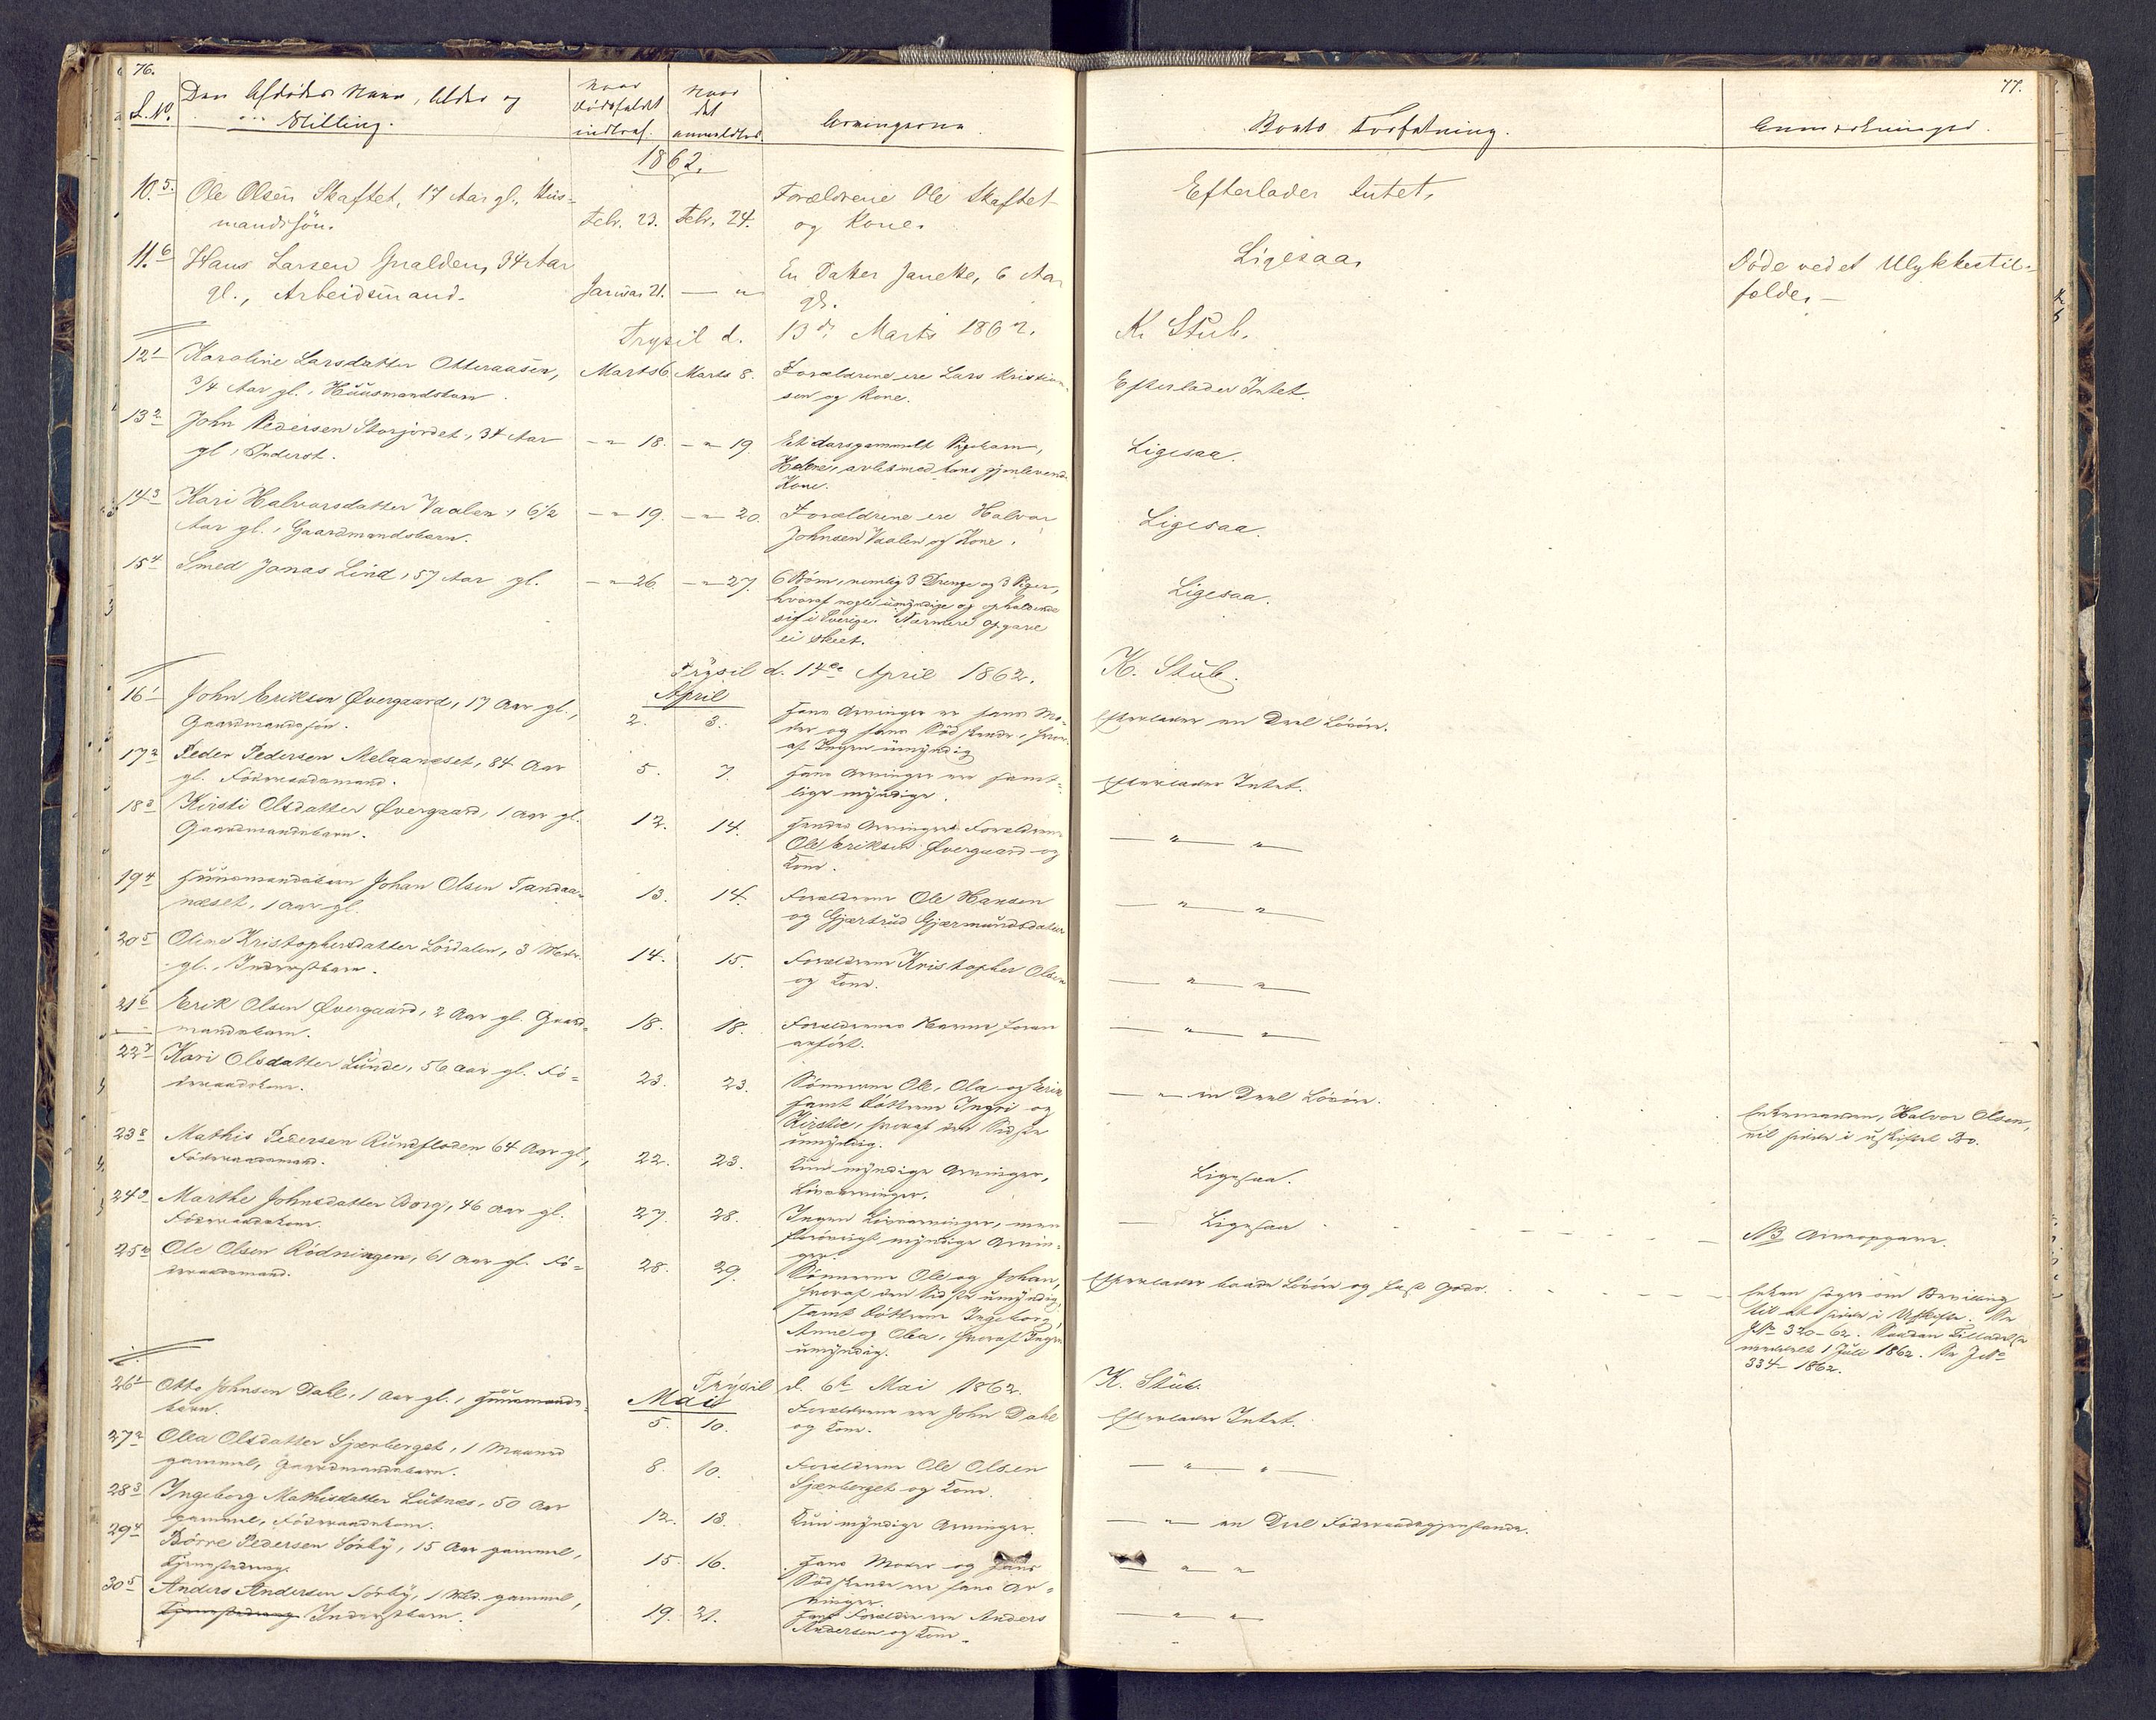 76.
L. No. Den Afdødes Navn, Alder og Stilling. Naar Dødsfaldet indtraf. Naar det anmeldtes. Arvingerne.
1862.
10.5. Ole Olsen Skaftet, 17 Aar gl., Hus- Febr. 23. Febr. 24. Forældrene Ole Skaftet
mandssøn. og Kone.
11.6 Hans Larsen Gnalden, 34 Aar Januar 21. — " En Datter Janette, 6 Aar
gl., Arbeidsmand. gl.
Trysil d. 13de Marts 1862.
12 1 Karoline Larsdatter Otteraasen, Marts 6 Marts 8. Forældrene ere Lars Kristian-
3/4 Aar gl., Huusmandsbarn. sen og Kone.
13 2 John Pedersen Storjordet, 34 Aar — " 18. — " 19. Et Aarsgammelt Pigebarn,
gl., Inderst. Helene, avlet med hans gjenlevende
Kone.
14 3 Kari Halvorsdatter Vaalen, 6 1/2 — " 19. — " 20. Forældrene ere Halvor
Aar gl., Gaardmandsbarn. Johnsen Vaalen og Kone.
15 4 Smed Jonas Lind, 57 Aar gl. — " 26. — " 27. 6 Børn, nemlig 3 Drenge og 3 Piger,
hvoraf nogle umyndige og opholdende
sig i Sverige. Nærmere Opgave
ei skeet.
Trysil d. 14de April 1862.
April
16 1 John Eriksen Øvergaard, 17 Aar gl., 2. 3. Hans Arvinger er hans Mo-
Gaardmandssøn. der og hans Sødskende, hvor-
af Ingen umyndig
17 2 Peder Pedersen Melaaneset, 84 Aar 5. 7. Hans Arvinger ere samt-
gl. Føderaadsmand. lige myndige.
18 3 Kirsti Olsdatter Øvergaard, 1 Aar gl. 12. 14. Hendes Arvinger Forældrene
Gaardmandsbarn. Ole Eriksen Øvergaard og
Kone.
19 4 Huusmandsbarn Johan Olsen Tandaa- 13. 14. Forældrene Ole Hansen
næset, 1 Aar gl. og Gjertrud Gjermundsdatter
20 5 Oline Kristophersdatter Lördalen, 3 14. 15. Forældrene Kristopher Olsen
gl., Inderstbarn. og Kone.
21 6 Erik Olsen Øvergaard, 2 Aar gl. Gaard- 18. 18. Forældrenes Navne foran
mandsbarn. anført.
22 7 Kari Olsdatter Lunde, 56 Aar gl. Fø- 23. 23. Sønnerne Ole, Ola og Erik
deraadskone. samt Døttrene Ingri og
Kirstie, hvoraf den Sidste
umyndig.
23 8 Mathis Pedersen Rundfloden 64 Aar gl., 22. 23. Kun myndige Arvinger,
Føderaadsmand. Livsarvinger.
24 9 Marthe Johnsdatter Borg, 46 Aar gl. 27. 28. Ingen Livsarvinger, men
Føderaadskone. forøvrigt myndige Arvin-
ger.
25 10 Ole Olsen Rödningen, 61 Aar gl. Fø- 28. 29. Sønnerne Ole og Johan,
deraadsmand. hvoraf den Sidste umyndig,
samt Døttrene Ingeborg,
Anne og Olea, hvoraf Ingen
umyndig.
Trysil d. 6te Mai 1862.
Mai
26 1 Otto Johnsen Dahl, 1 Aar gl., Huusmands- 5. 10. Forældrene ere John Dahl
barn. og Kone.
27 2 Olea Olsdatter Sjærberget, 1 Maaned 8. 10. Forældrene Ole Olsen
gammel, Gaardmandsbarn. Sjærberget og Kone.
28 3 Ingeborg Mathisdatter Lutnæs, 50 Aar 12. 13. Kun myndige Arvinger.
gammel, Føderaadskone.
29 4 Børre Pedersen Sørby, 15 Aar gammel, 15. 16. Hans Moder og hans
Tjenestedreng. Sødskende ere hans Ar-
vinger.
30 5 Anders Andersen Sørby, 1 Md. gammel, 19. 21. Hans Forældre ere Anders
Tjenestedreng Inderstbarn. Andersen og Kone.
77.
Boets Forfatning. Anmærkninger.
Efterlader Intet.
Ligesaa. Døde ved et Ulykkestil-
fælde.
K. Stub.
Efterlader Intet.
Ligesaa.
Ligesaa.
Ligesaa.
K. Stub.
Efterlader en Deel Løsøre.
Efterlader Intet.
— " — "
— " — "
— " — "
— " — "
— " en Deel Løsøre. Enkemanden, Halvor Olsen,
vil sidde i uskiftet Bo.
Ligesaa.
Ligesaa NB Arveopgave.
Efterlader baade Løsøre og fast Gods. Enken søger om Bevilling
til at sidde i Uskifte. Se
J.No 320-62. Saadan Tilladelse
meddelt 1 Juli 1862. Se J.No
334-1862.
K. Stub.
Efterlader Intet.
— " — "
— " en Deel Føderaadsgjenstande.
— " "
— " "